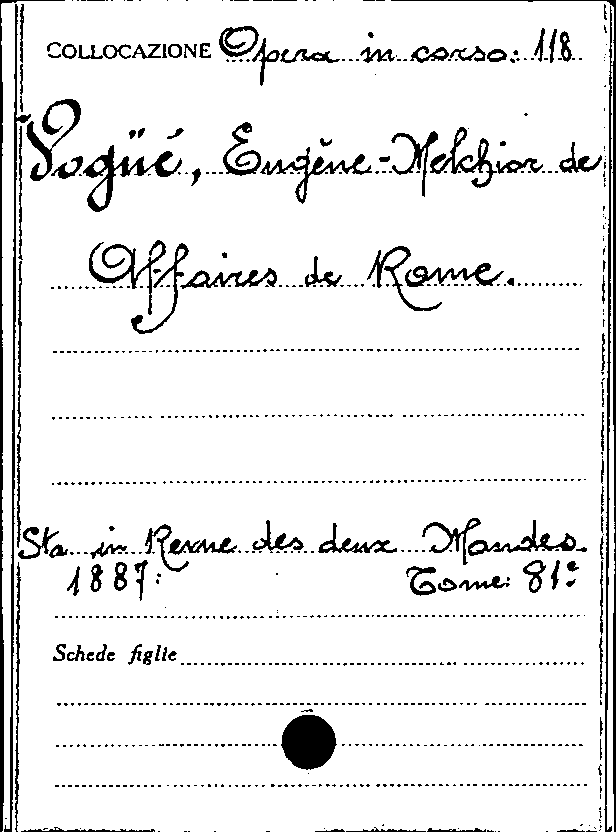 COLLOCAZIONE Opera in corso: 118
Vogüé, Eugène-Melchior de
Affaires de Rome.
Sta in Revue des deux Mondes.
1887: Tome: 81e
Schede figlie